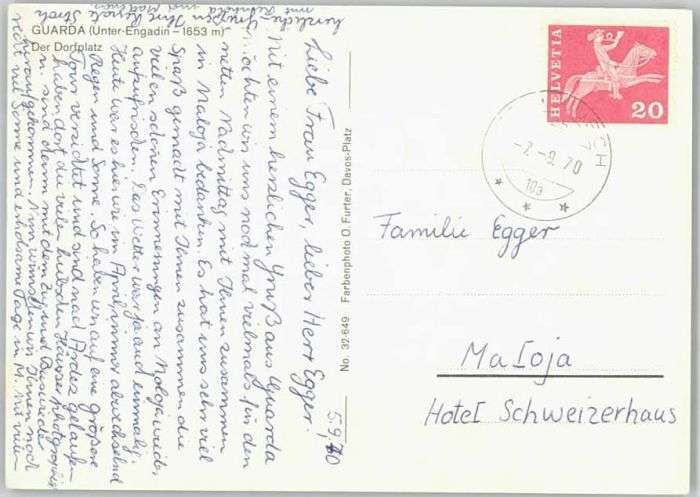 GUARDA (Unter-Engadin – 1653 m)
Der Dorfplatz
5.9.70
Liebe Frau Egger, lieber Herr Egger.
Mit einem herzlichen Gruß aus Guarda
möchten wir uns noch mal vielmals für den
netten Nachmittag mit Ihnen zusammen
in Maloja bedanken. Es hat uns sehr viel
Spaß gemacht mit Ihnen zusammen die
vielen schönen Erinnerungen an Maloja wieder
aufzufrischen. Das Wetter war ja auch einmalig.
Heute war es hier wie im April, immer abwechselnd
Regen und Sonne. So haben wir auf eine größere
Tour verzichtet und sind nach Ardez gelaufen
haben dort die vielen hübschen Häuser photographiert
sind dann mit dem Zug und Bus wieder
heraufgekommen. Nun wünschen wir Ihnen noch
recht viel Sonne und erholsame Tage in M. Mit vielen
herzlichen Grüßen Ihre
No. 32-649 Farbenphoto O. Furter, Davos-Platz
HELVETIA
20
-7.-9.70
10a
Familie Egger
Maloja
Hotel Schweizerhaus